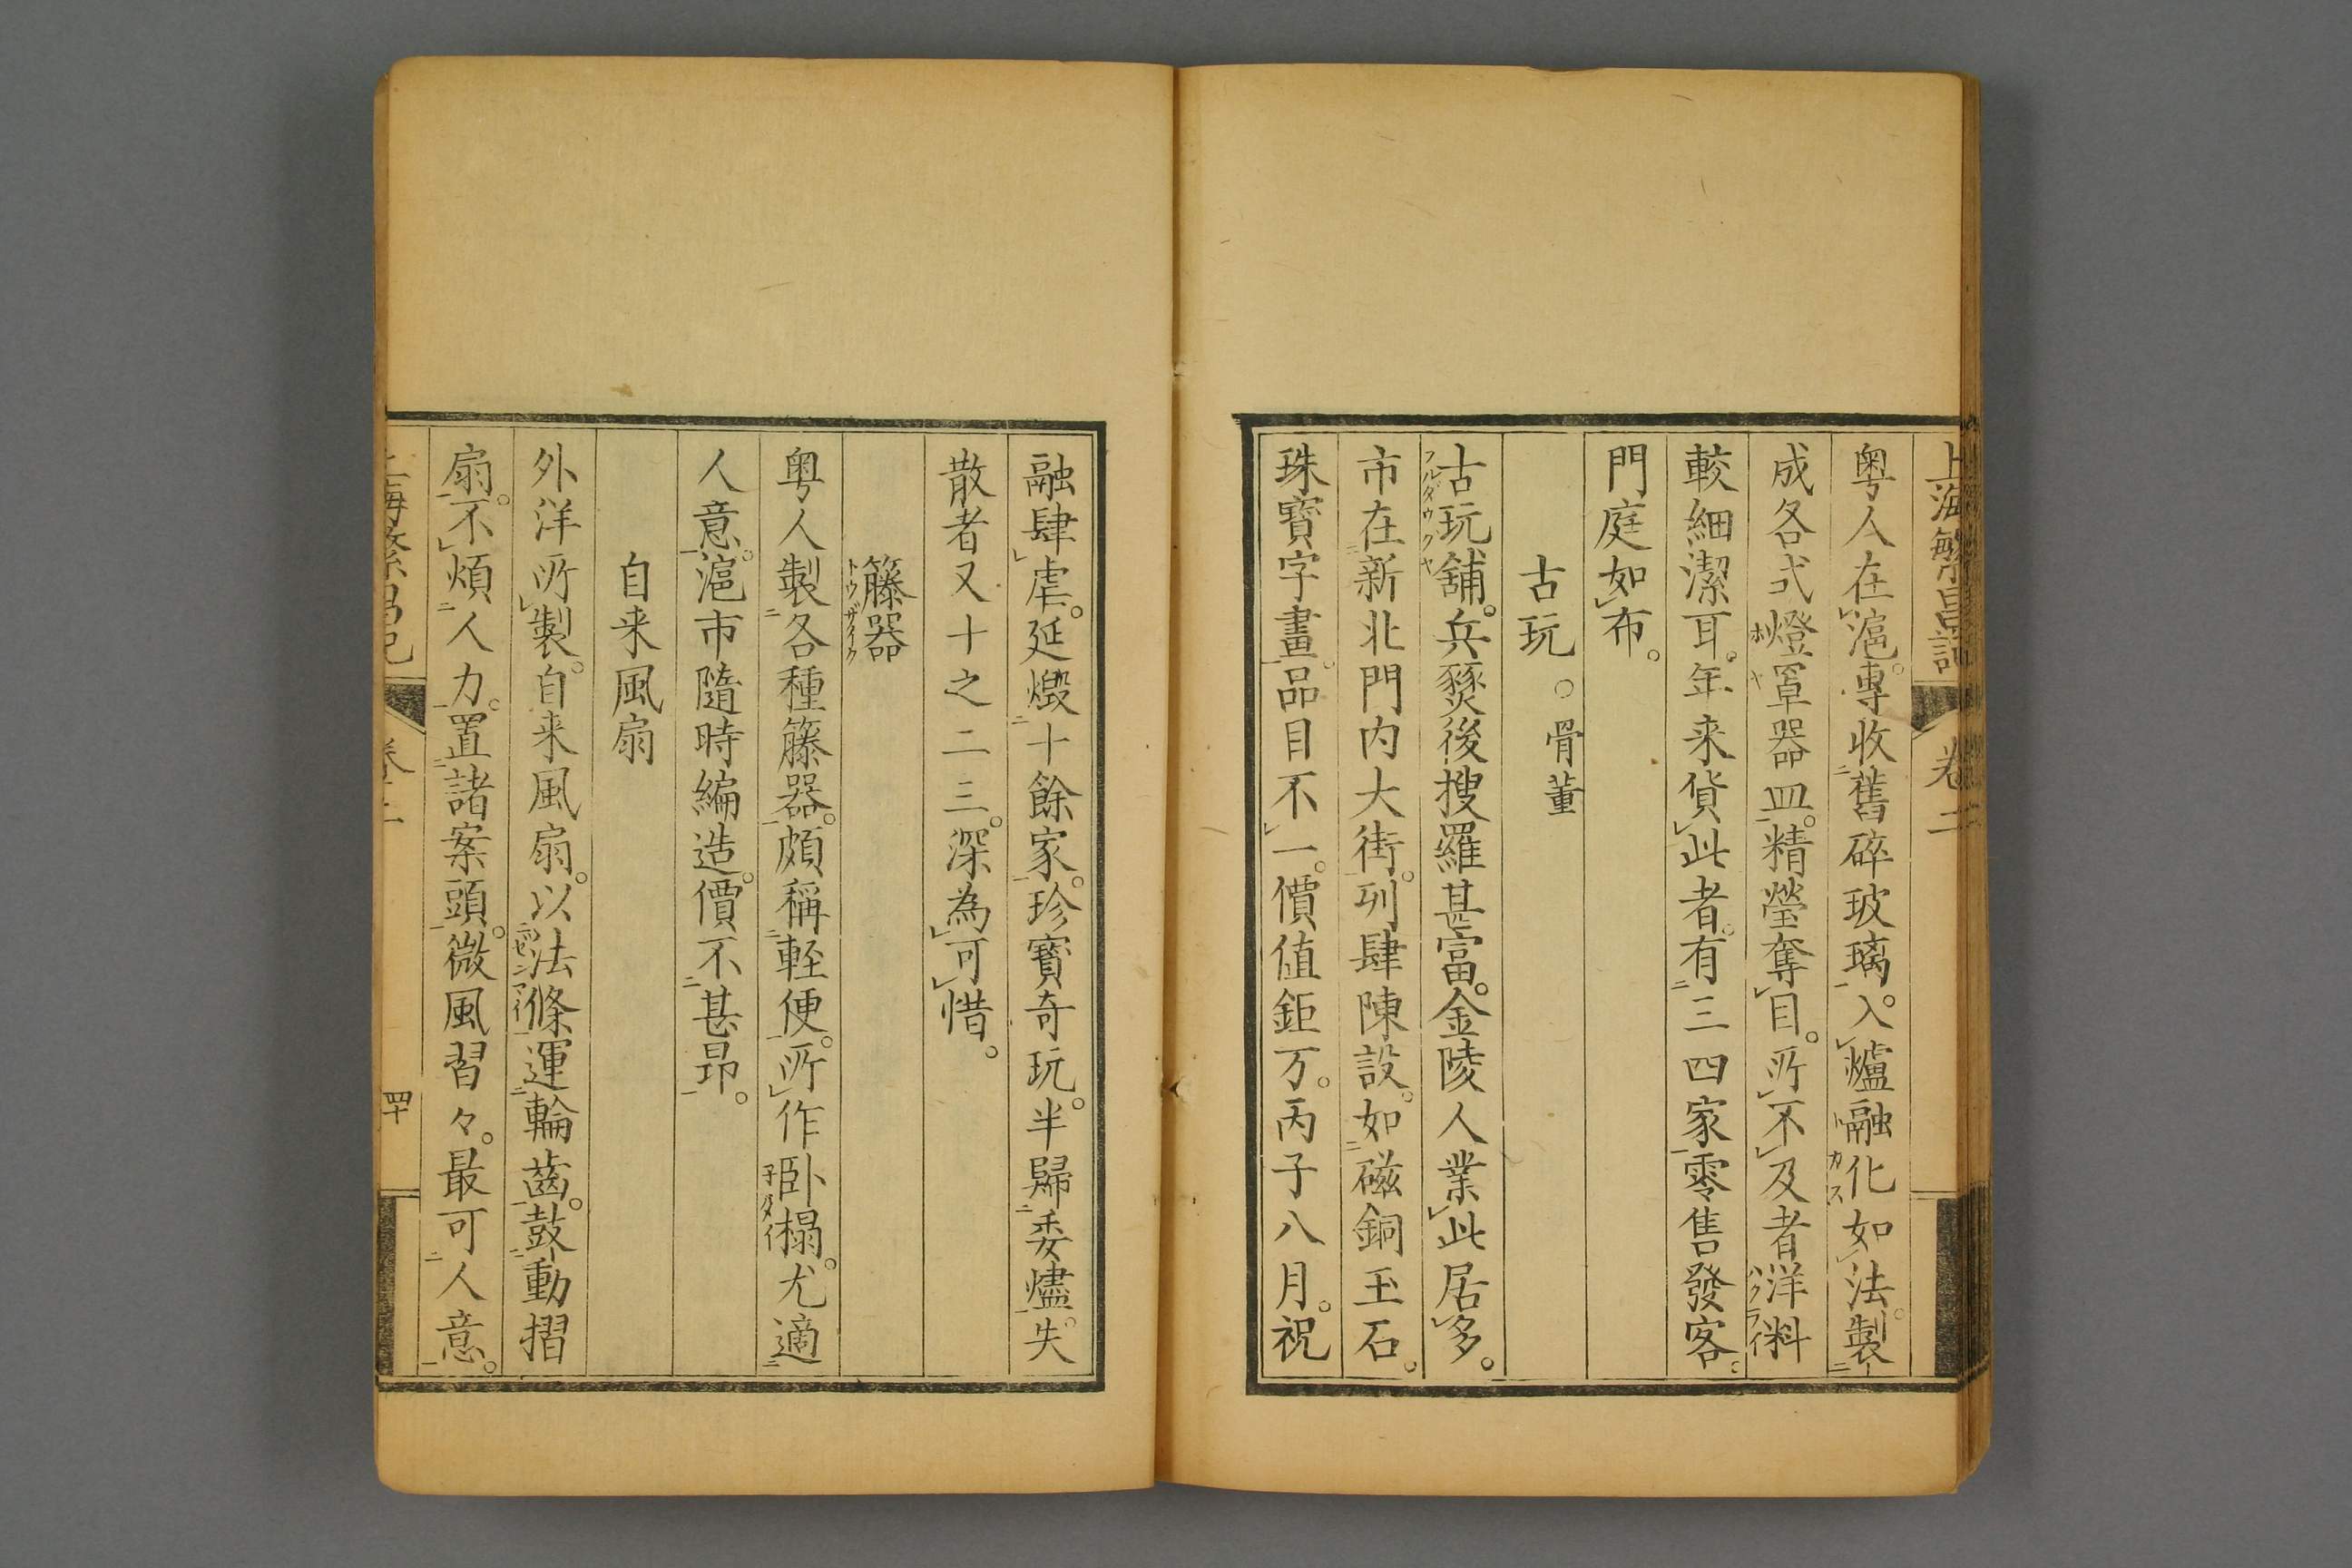 上海繁昌記 卷二
粤人在滬。專收舊碎玻璃。入爐融化如法。製
成各式燈罩器皿。精瑩奪目。所不及者洋料
較細潔耳。年来貨此者。有三四家零售發客。
門庭如布。
古玩。骨董
古玩舖。兵燹後搜羅甚富。金陵人業此居多。
市在新北門内大街。列肆陳設。如磁銅玉石。
珠寶字畫。品目不一。價值鉅万。丙子八月。祝
融肆虐。延燬十餘家。珍寶奇玩。半歸委燼。失
散者又十之二三。深為可惜。
籐器
粤人製各種籐器。頗稱輕便。所作卧榻。尤適
人意。滬市隨時編造。價不甚昂。
自来風扇
外洋所製。自来風扇。以法條運輪齒。鼓動摺
扇。不煩人力。置諸案頭。微風習々。最可人意。
上海繁昌記 卷二 四十